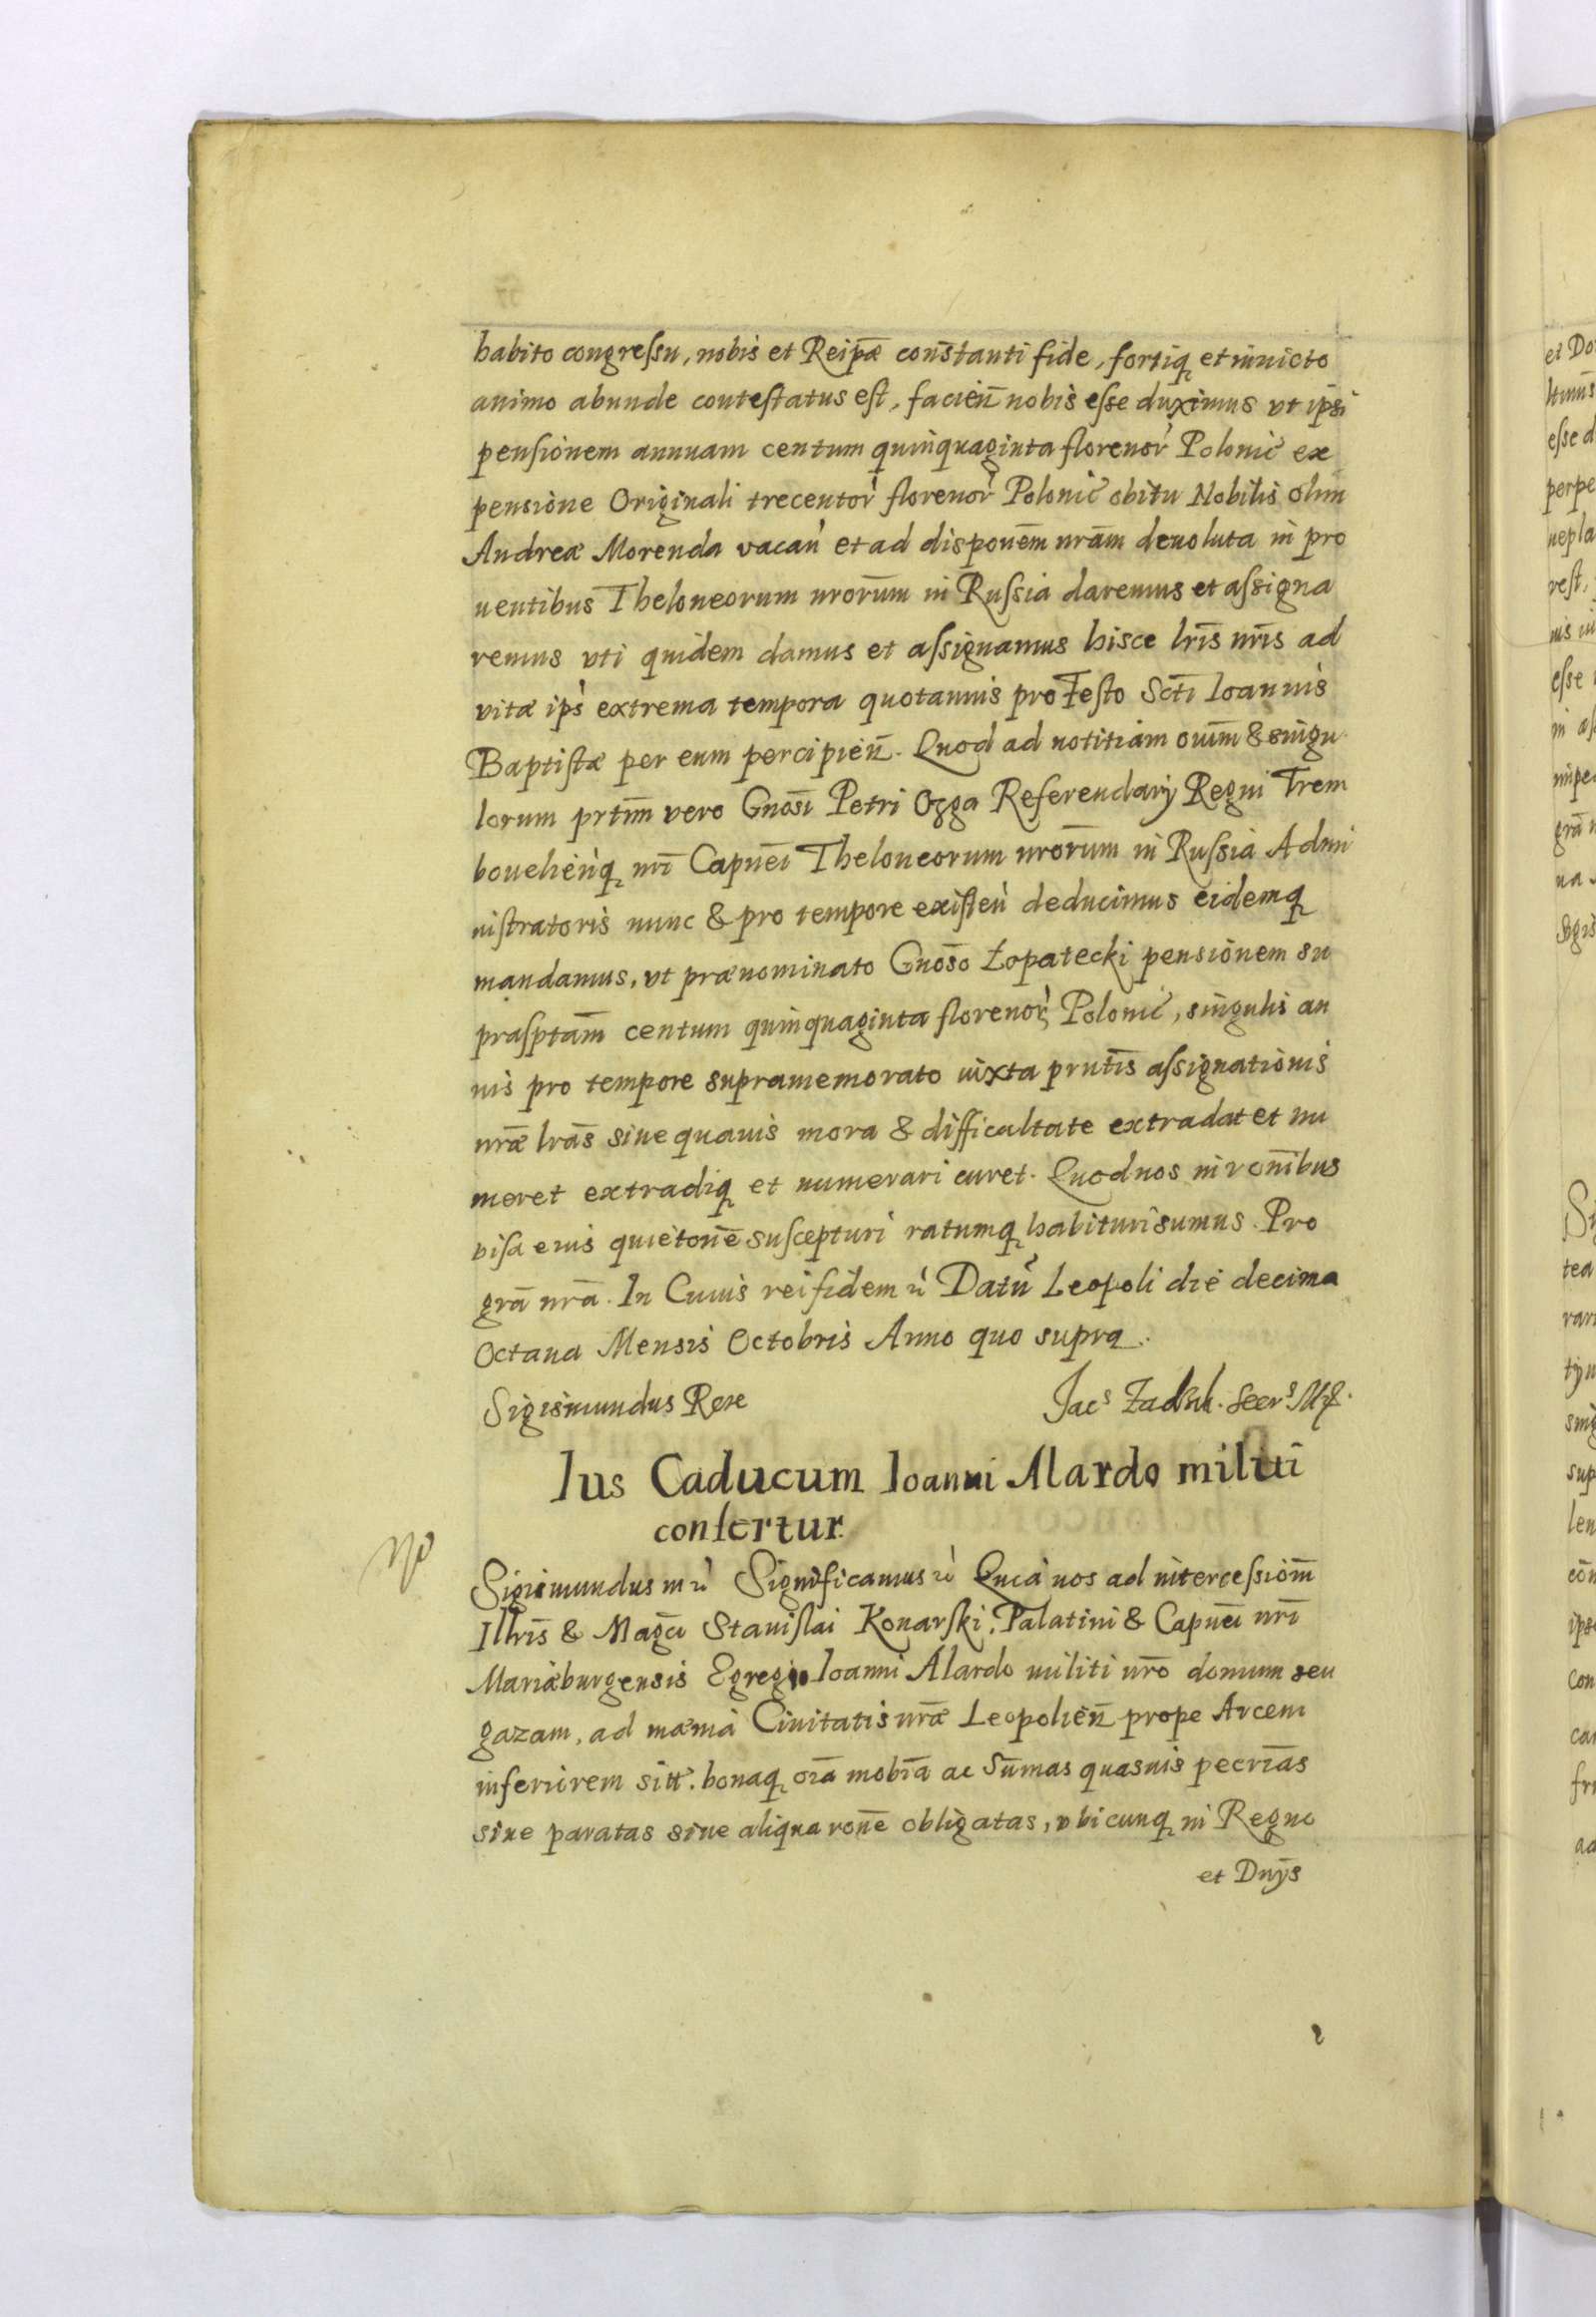 habito congreſsu, nobis et Reipæ constanti fide, fortiq et inuicto
animo abunde conteſtatus eſt, facien̄ nobis eſse duximus vt ipsi
penſionem annuam centum quinquaginta florenor̀ Polonic̀ ex
pensione Originali trecentor̀ florenor̀ Polonic̀ obitu Nobilis olim
Andreæ Morenda vacan̄ et ad disponem̄ nrām deuoluta in pro
uentibus Theloneorum nrorūm in Ruſsia daremus et aſsigna
remus vti quidem damus et aſsignamus hisce lrīs nrīs ad
vitæ ips̀ extrema tempora quotannis pro Feſto Sctī Ioannis
Baptiſtæ per eum percipien̄. Quod ad notitiam oniūm & singu
lorum prtīm vero Gnosī Petri Ozga Referendarij Regni Trem
bouelien̄q nrī Capnēi Theloneorum nrorūm in Ruſsia Admi
niſtratoris nunc & pro tempore exiſten̄ deducimus eidemq
mandamus, vt prænominato Gnosō Łopatecki pensionem su
praſptām centum quinquaginta florenor̀ Polonic̀, singulis an
nis pro tempore supramemorato iuxta prntīs aſsignationis
nrǣ lrās sine quauis mora & difficultate extradat et nu
meret extradiq et numerari curet. Quod nos in ronībus
viſa eius quietonē suſcepturi ratumq habituri sumus. Pro
grā nrā. In Cuius rei fidem ꝛ̀ Datū Leopoli die decima
Octaua Mensis Octobris Anno quo supra.
Sigismundus Rex
Jacs Zadzik. Secrs Mẜ.
Ius Caducum Ioanni Alardo militi
confertur
Sigismundus m ꝛ̀ Significamus ꝛ̀ Quia nos ad interceſsiōm
Illrīs & Magcī Staniſlai Konarſki, Palatini & Capnēi nrī
Mariæburgensis Egregio Ioanni Alardo militi nrō domum seu
gazam, ad mæniā Ciuitatis nrǣ Leopolien̄ prope Arcem
inferiorem sitt̀. bonaq oīa mobīa ac Sūmas quasuis pecrīas
siue paratas siue aliqua ronē obligatas, vbicunq in Regno
et Dnijs